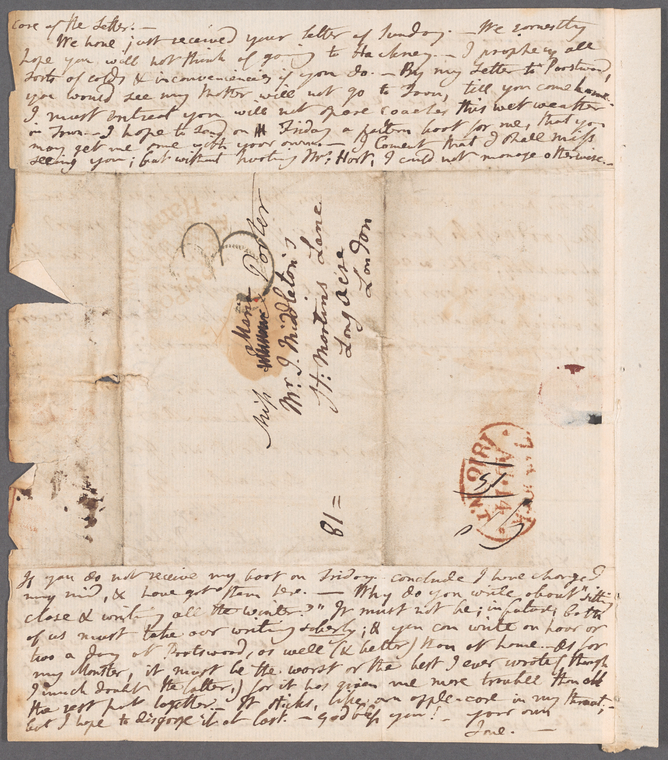 Care of the Letter. —
We have just received your letter of Sunday. — We earnestly
hope you will not think of going to Hackney. — I prophecy all
sorts of colds & inconveniences if you do. — By my Letter to Portswood,
you would see my Mother will not go to Town, till you come home.
I must entreat you will not spare coaches this wet weather
in Town. — I hope to send on Friday a pattern boot for me, that you
may get me one with your own. — I lament that I shall miss
seeing you; but without hurting Mrs. Hort, I could not manage otherwise. —
3
Miss Maria Porter
Mr. J. Middleton's
St. Martins Lane
Long Acre
London
81=
1810
If you do not receive my boot on Friday conclude I have changed
my mind, & have got them here. — Why do you write about "sitting
close & writing all the winter?" It must not be; in future, both
of us must take our writing soberly; & you can write an hour or
two a day at Portswood, as well (& better) than at home. As for
my Monster, it must be the worst or the best I ever wrote (though
I much doubt the latter,) for it has given me more trouble than all
the rest put together. — It sticks, like an apple-core in my throat;
but I hope to disgorge it at last. — God bless you! your own
Jane. —